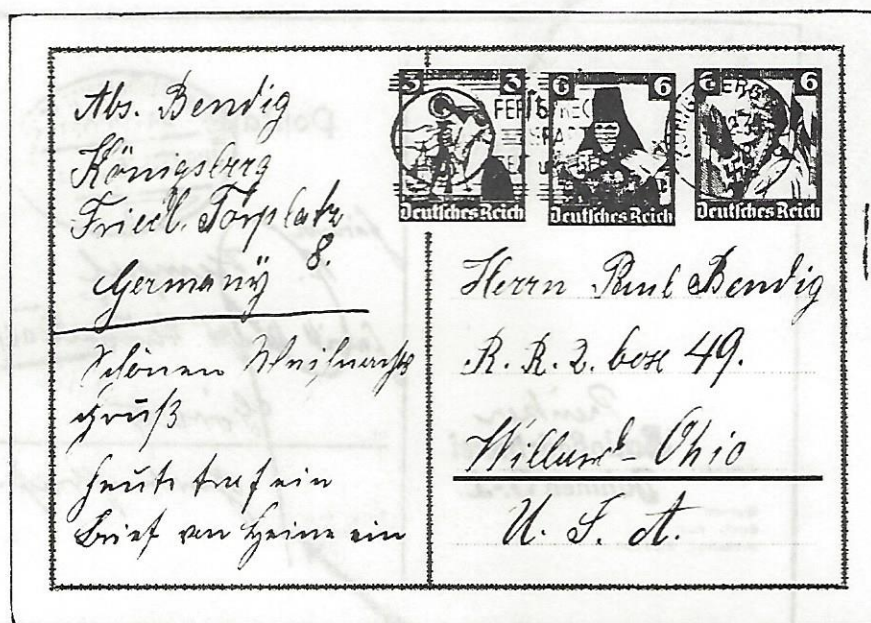 Abs. Bendig
Königsberg
Friedl. Torplatz
8.
Germany
Schönen Weihnachts
gruß
heute traf ein
Brief von Heine ein
3 3
6 6
6 6
Deutsches Reich
Deutsches Reich
Deutsches Reich
Herrn Paul Bendig
R. R. 2. box 49.
Willard-Ohio
U. S. A.